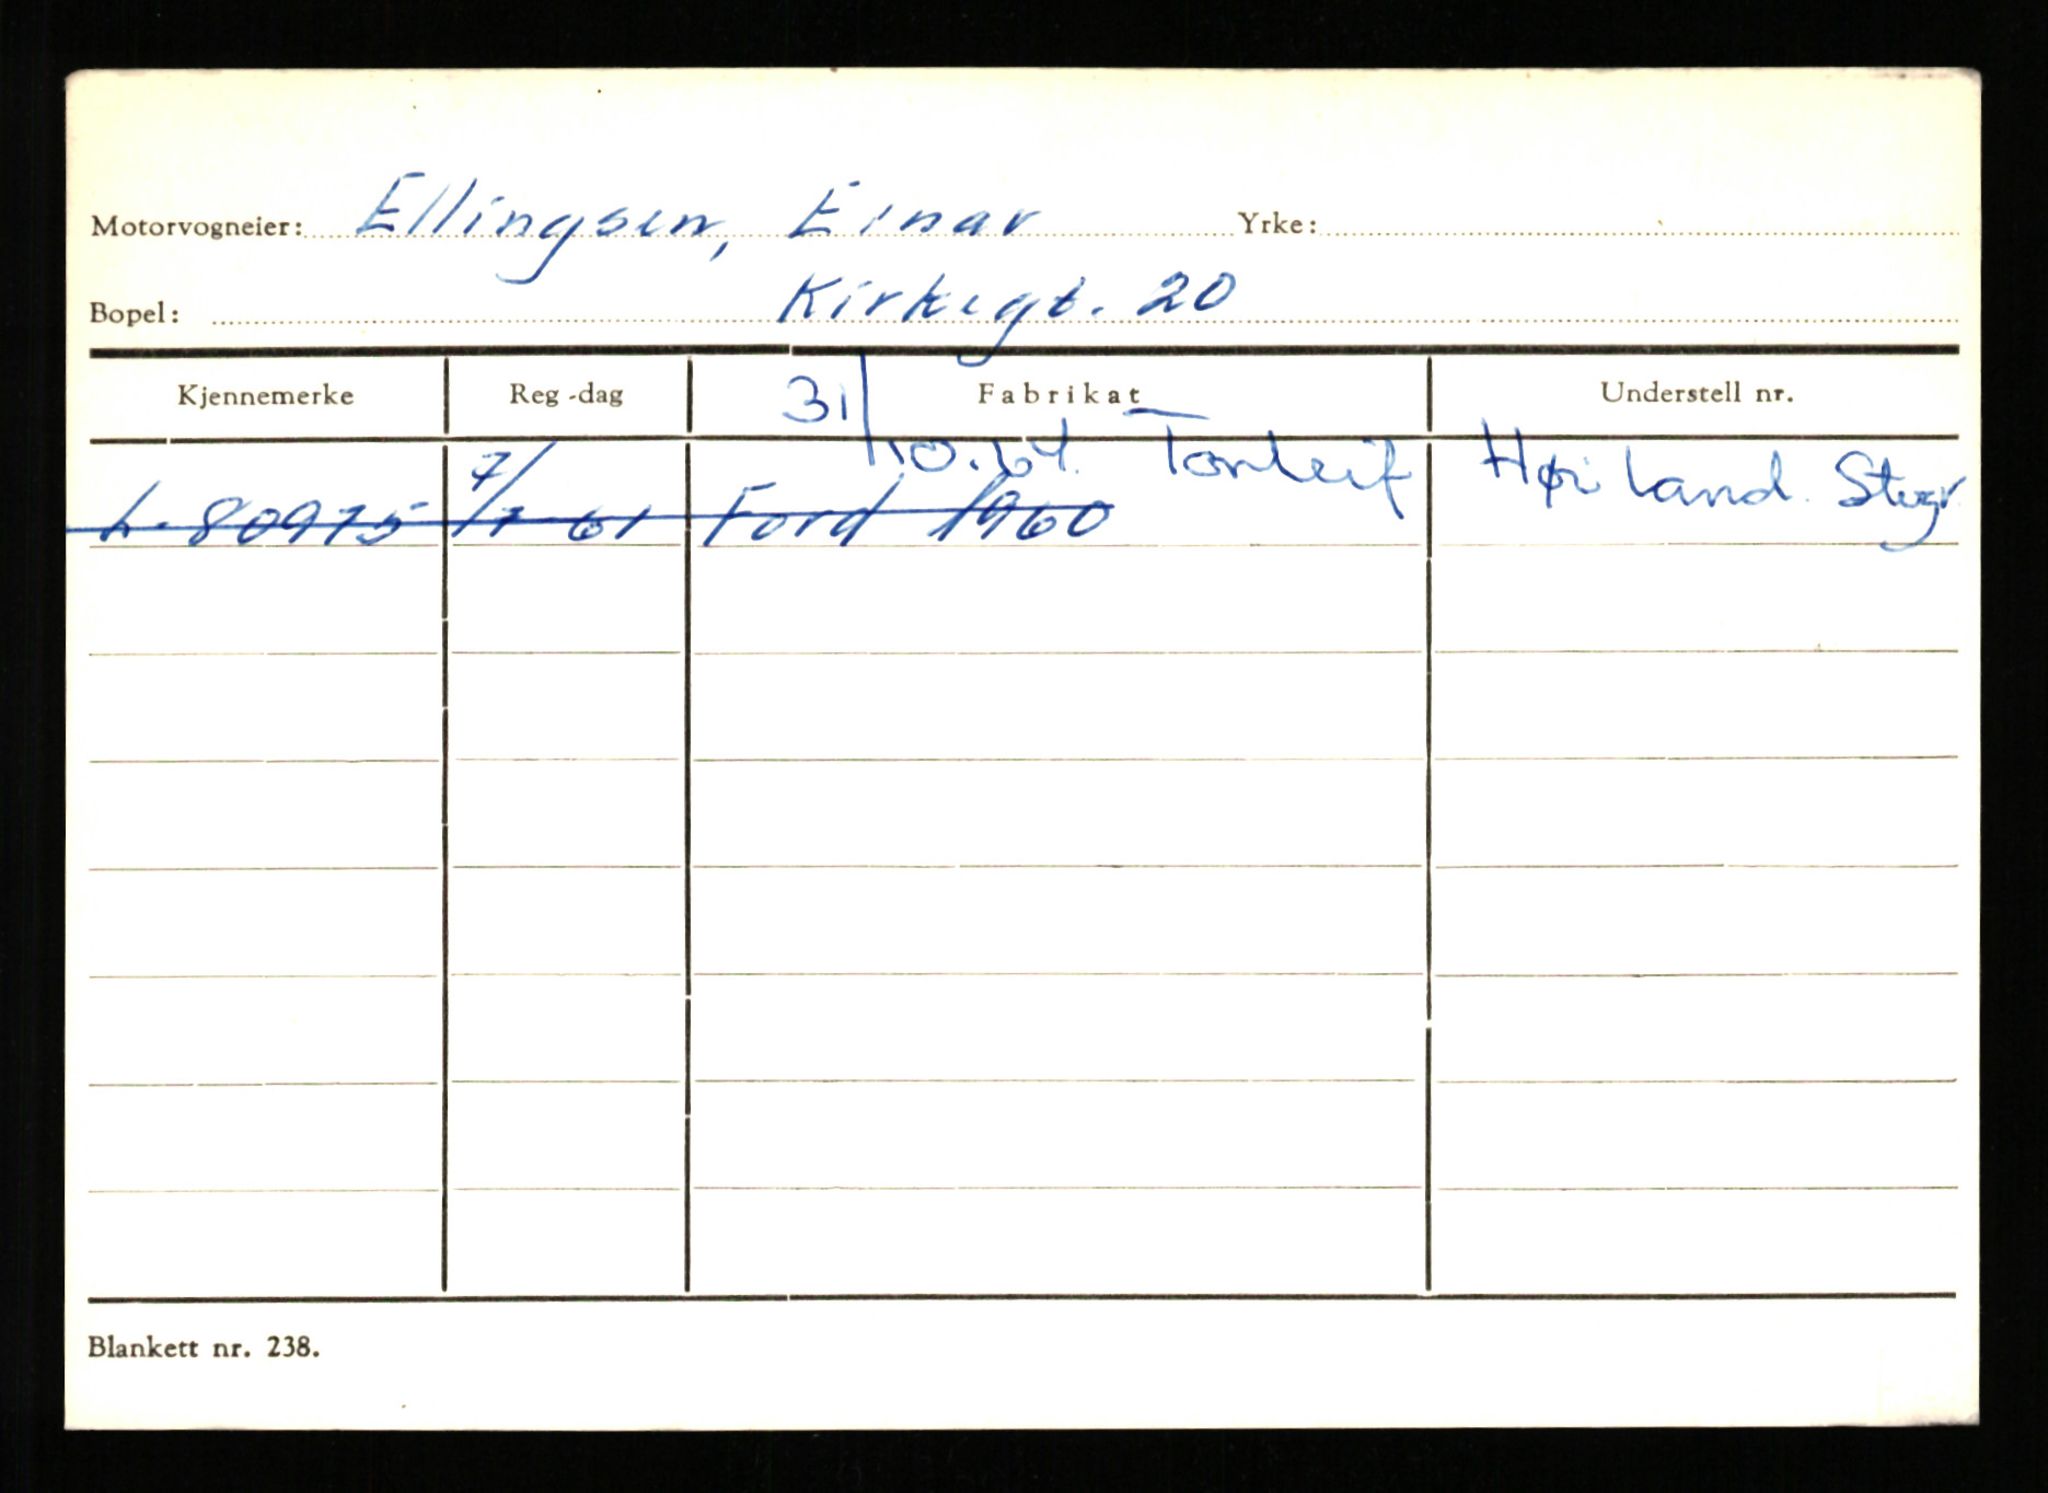 Motorvogneier: Ellingsen, Einar Yrke:
Bopel: Kirkegt. 20
Kjennemerke Reg-dag Fabrikat Understell nr.
31/10.64. Tonleif Høiland. Stvgr
L-80975 7/7 61 Ford 1960
Blankett nr. 238.